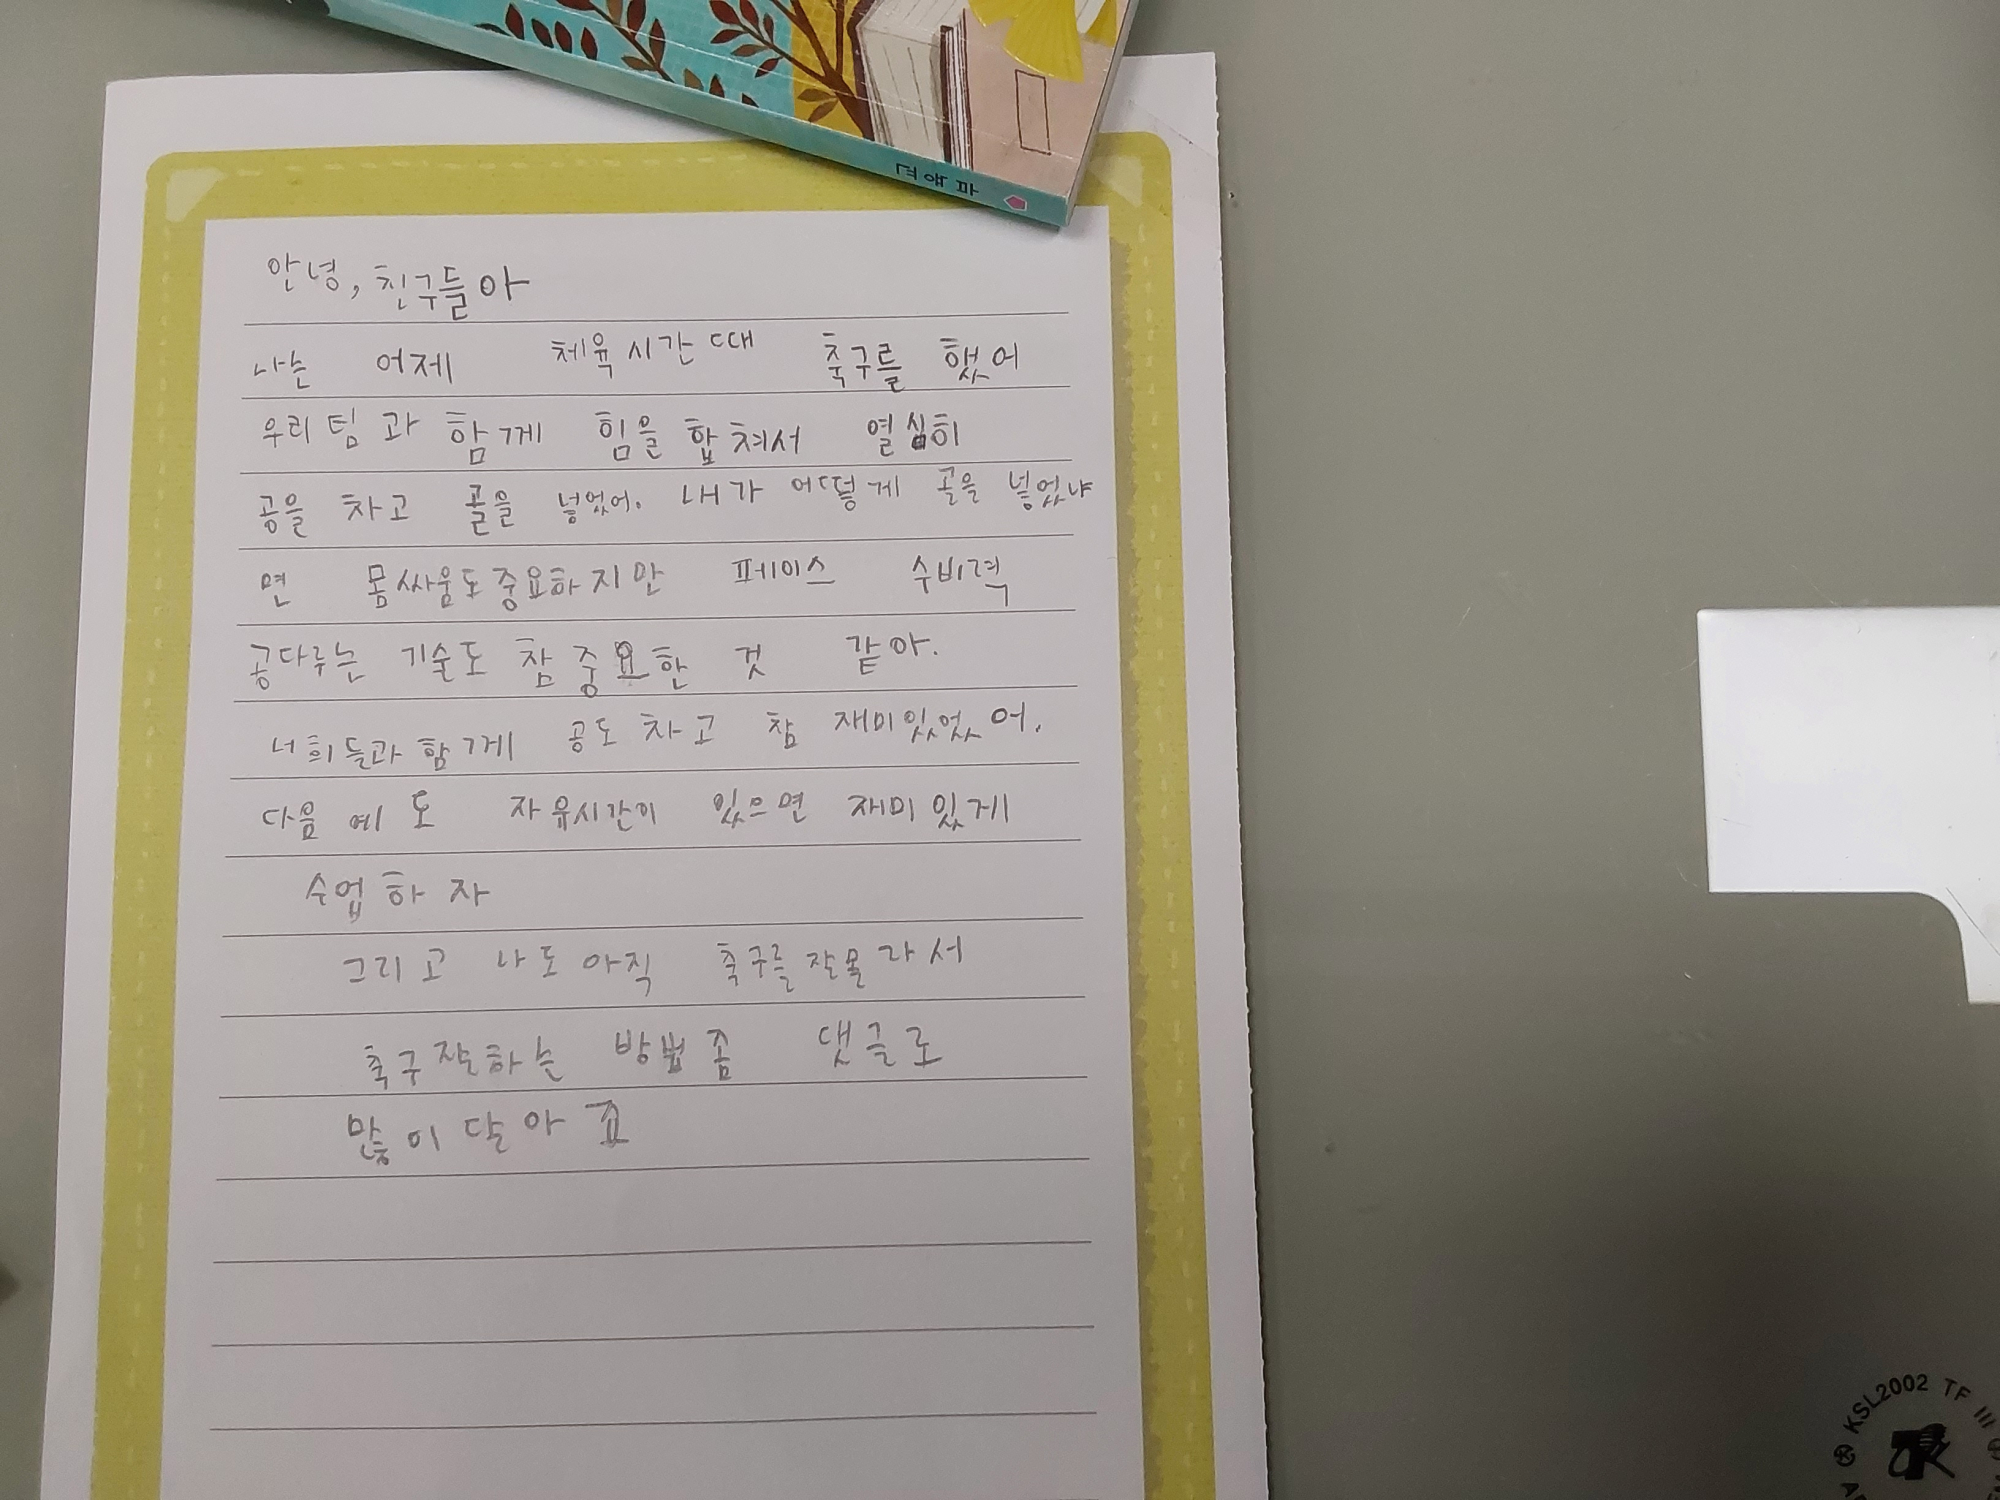 파랑새
안녕, 친구들아
나는 어제 체육시간때 축구를 했어
우리팀과 함께 힘을 합쳐서 열심히
공을 차고 골을 넣었어. 내가 어떻게 골을 넣었냐
면 몸싸움도중요하지만 페이스 수비력
공다루는 기술도 참 중요한 것 같아.
너희들과 함께 공도 차고 참 재미있었어.
다음 에 도 자유시간이 있으면 재미있게
수업하자
그리고 나도 아직 축구를 잘몰라서
축구잘하는 방법좀 댓글로
많이 달아죠
KSL2002 TF III